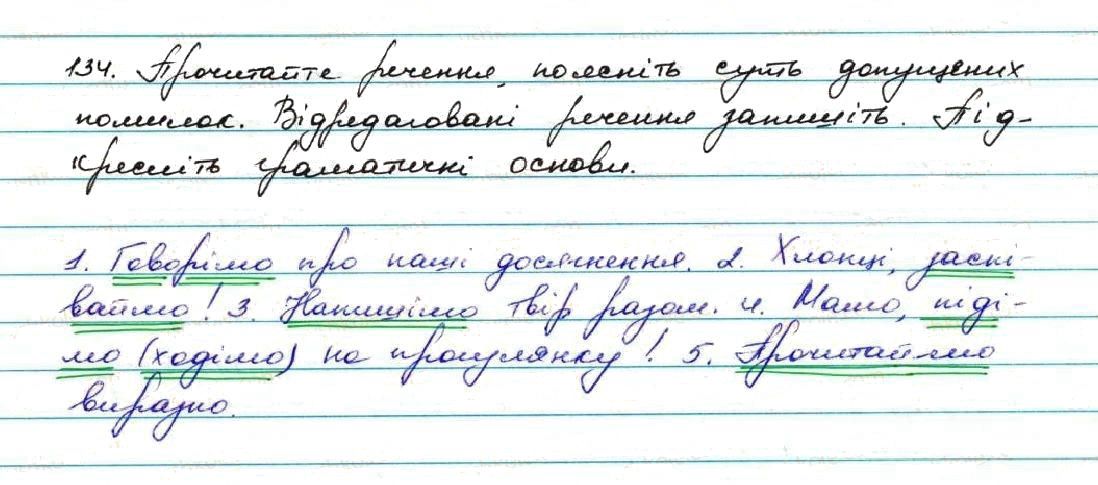 134. Прочитайте речення, поясніть суть допущених
помилок. Відредаговані речення запишіть. Під-
кресліть граматичні основи.
1. Говорімо про наші досягнення. 2. Хлопці, заспі-
ваймо! 3. Напишімо твір разом. 4. Мамо, піді-
мо (ходімо) на прогулянку! 5. Прочитаймо
виразно.